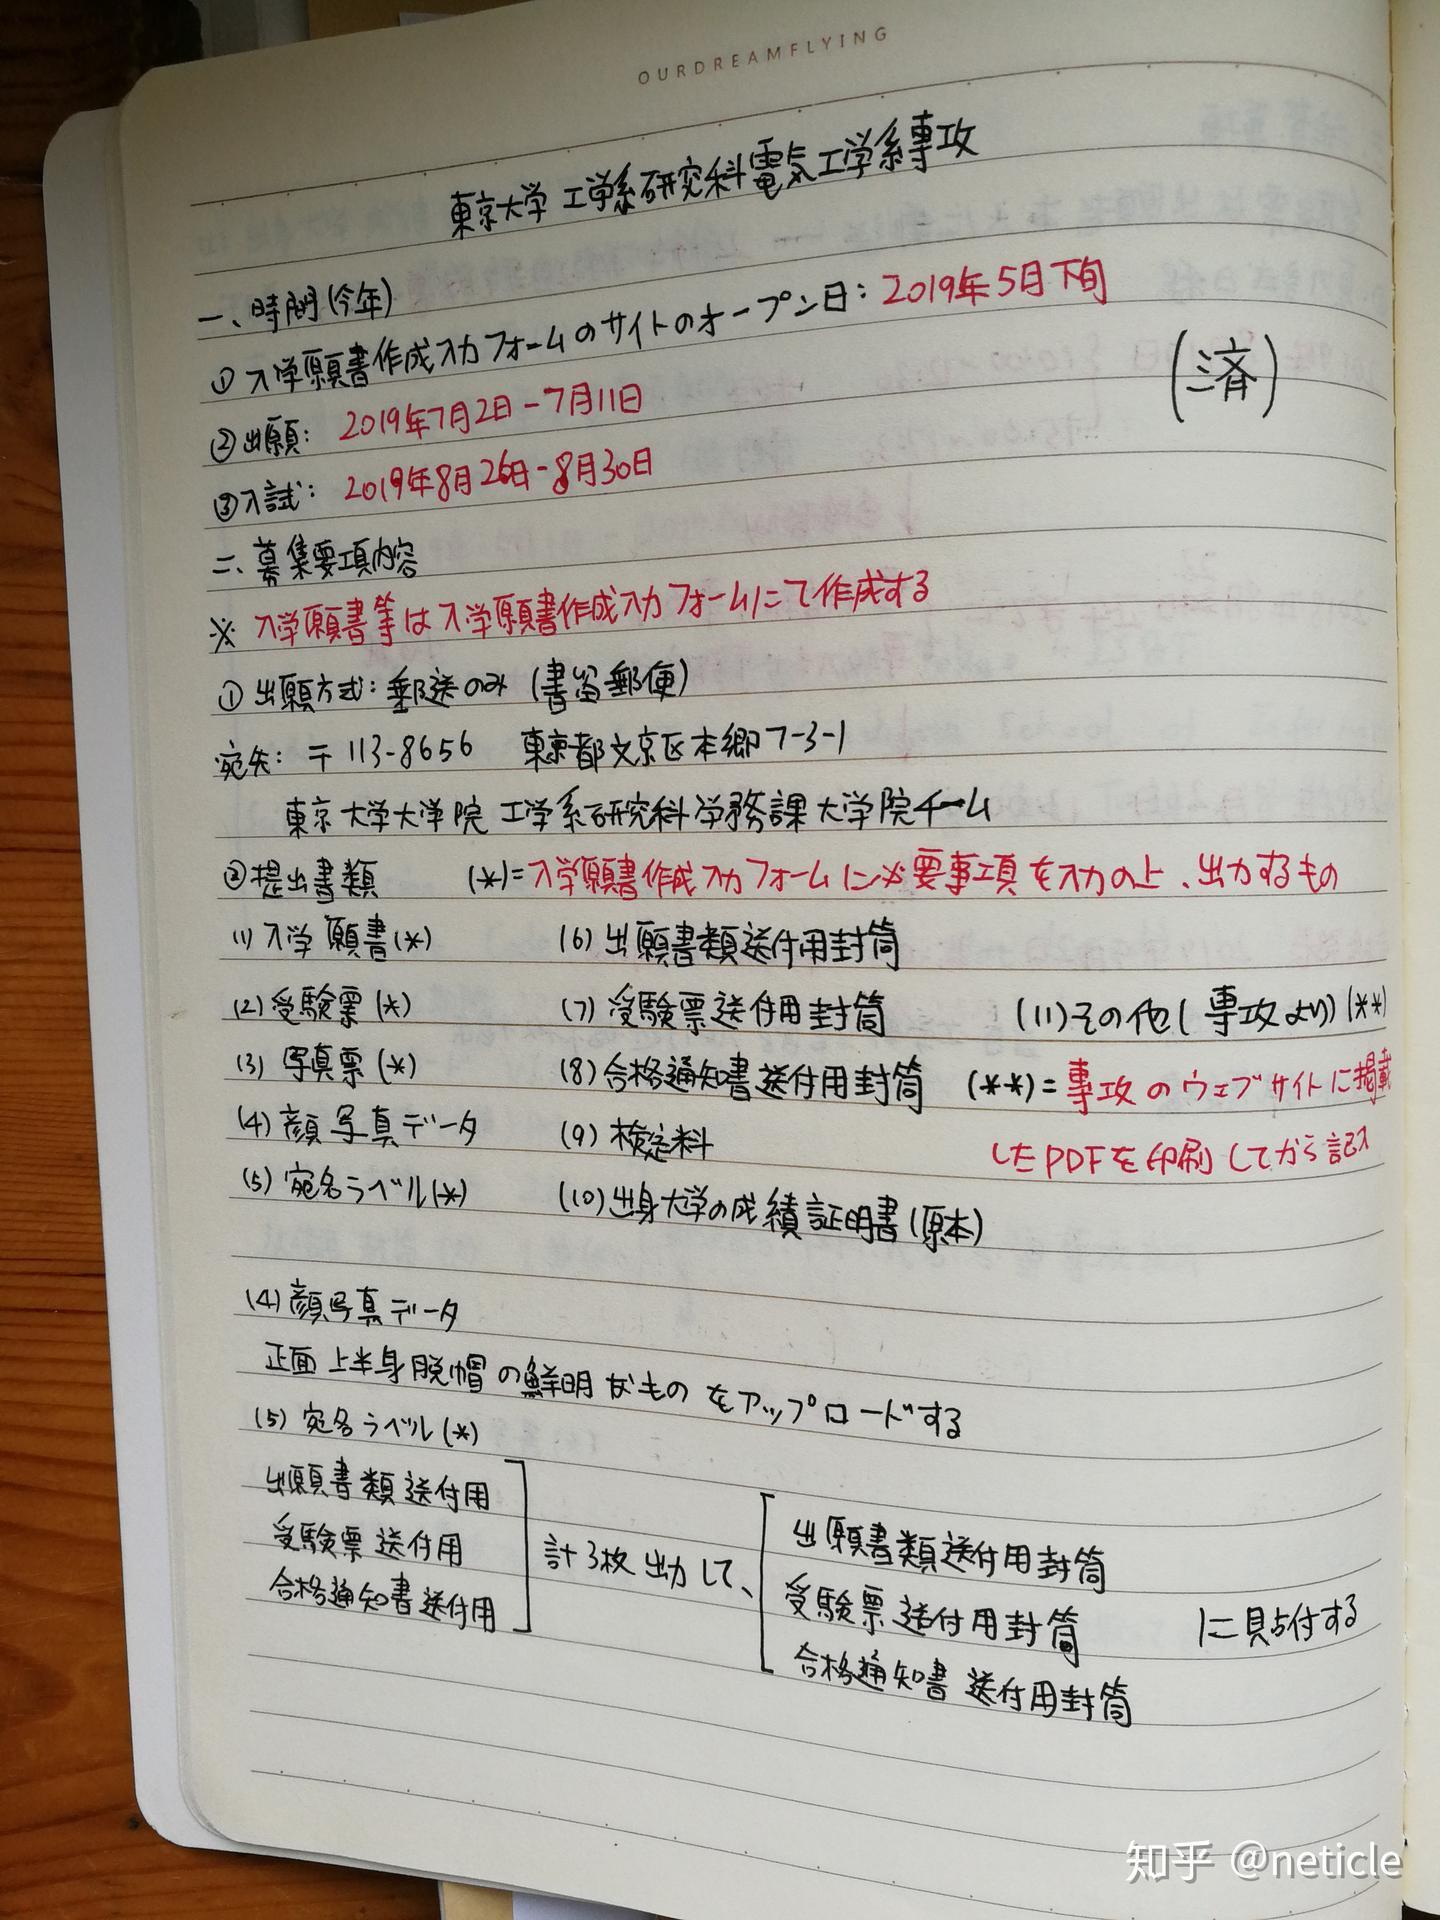 OURDREAMFLYING
東京大学 工学系研究科電気工学系専攻
一、時間(今年)
① 入学願書作成入力フォームのサイトのオープン日：2019年5月下旬
(済)
②出願： 2019年7月2日-7月11日
③入試： 2019年8月26日-8月30日
二、募集要項内容
※ 入学願書等は入学願書作成入力フォームにて作成する
① 出願方式：郵送のみ (書留郵便)
宛先：〒113-8656 東京都文京区本郷7-3-1
東京大学大学院 工学系研究科学務課大学院チーム
②提出書類 (*)=入学願書作成入力フォームに必要事項を入力の上、出力するもの
(1) 入学願書(*) (6) 出願書類送付用封筒
(2) 受験票(*) (7) 受験票送付用封筒 (11)その他(専攻より)(**)
(3) 写真票(*) (8)合格通知書送付用封筒 (**)=専攻のウェブサイトに掲載
(4) 顔写真データ (9)検定料 したPDFを印刷してから記入
(5) 宛名ラベル(*) (10)出身大学の成績証明書(原本)
(4)顔写真データ
正面上半身脱帽の鮮明なものをアップロードする
(5) 宛名ラベル(*)
出願書類送付用
受験票送付用
合格通知書送付用
計3枚出力して、
出願書類送付用封筒
受験票送付用封筒
合格通知書送付用封筒
に貼付する
知乎 @neticle